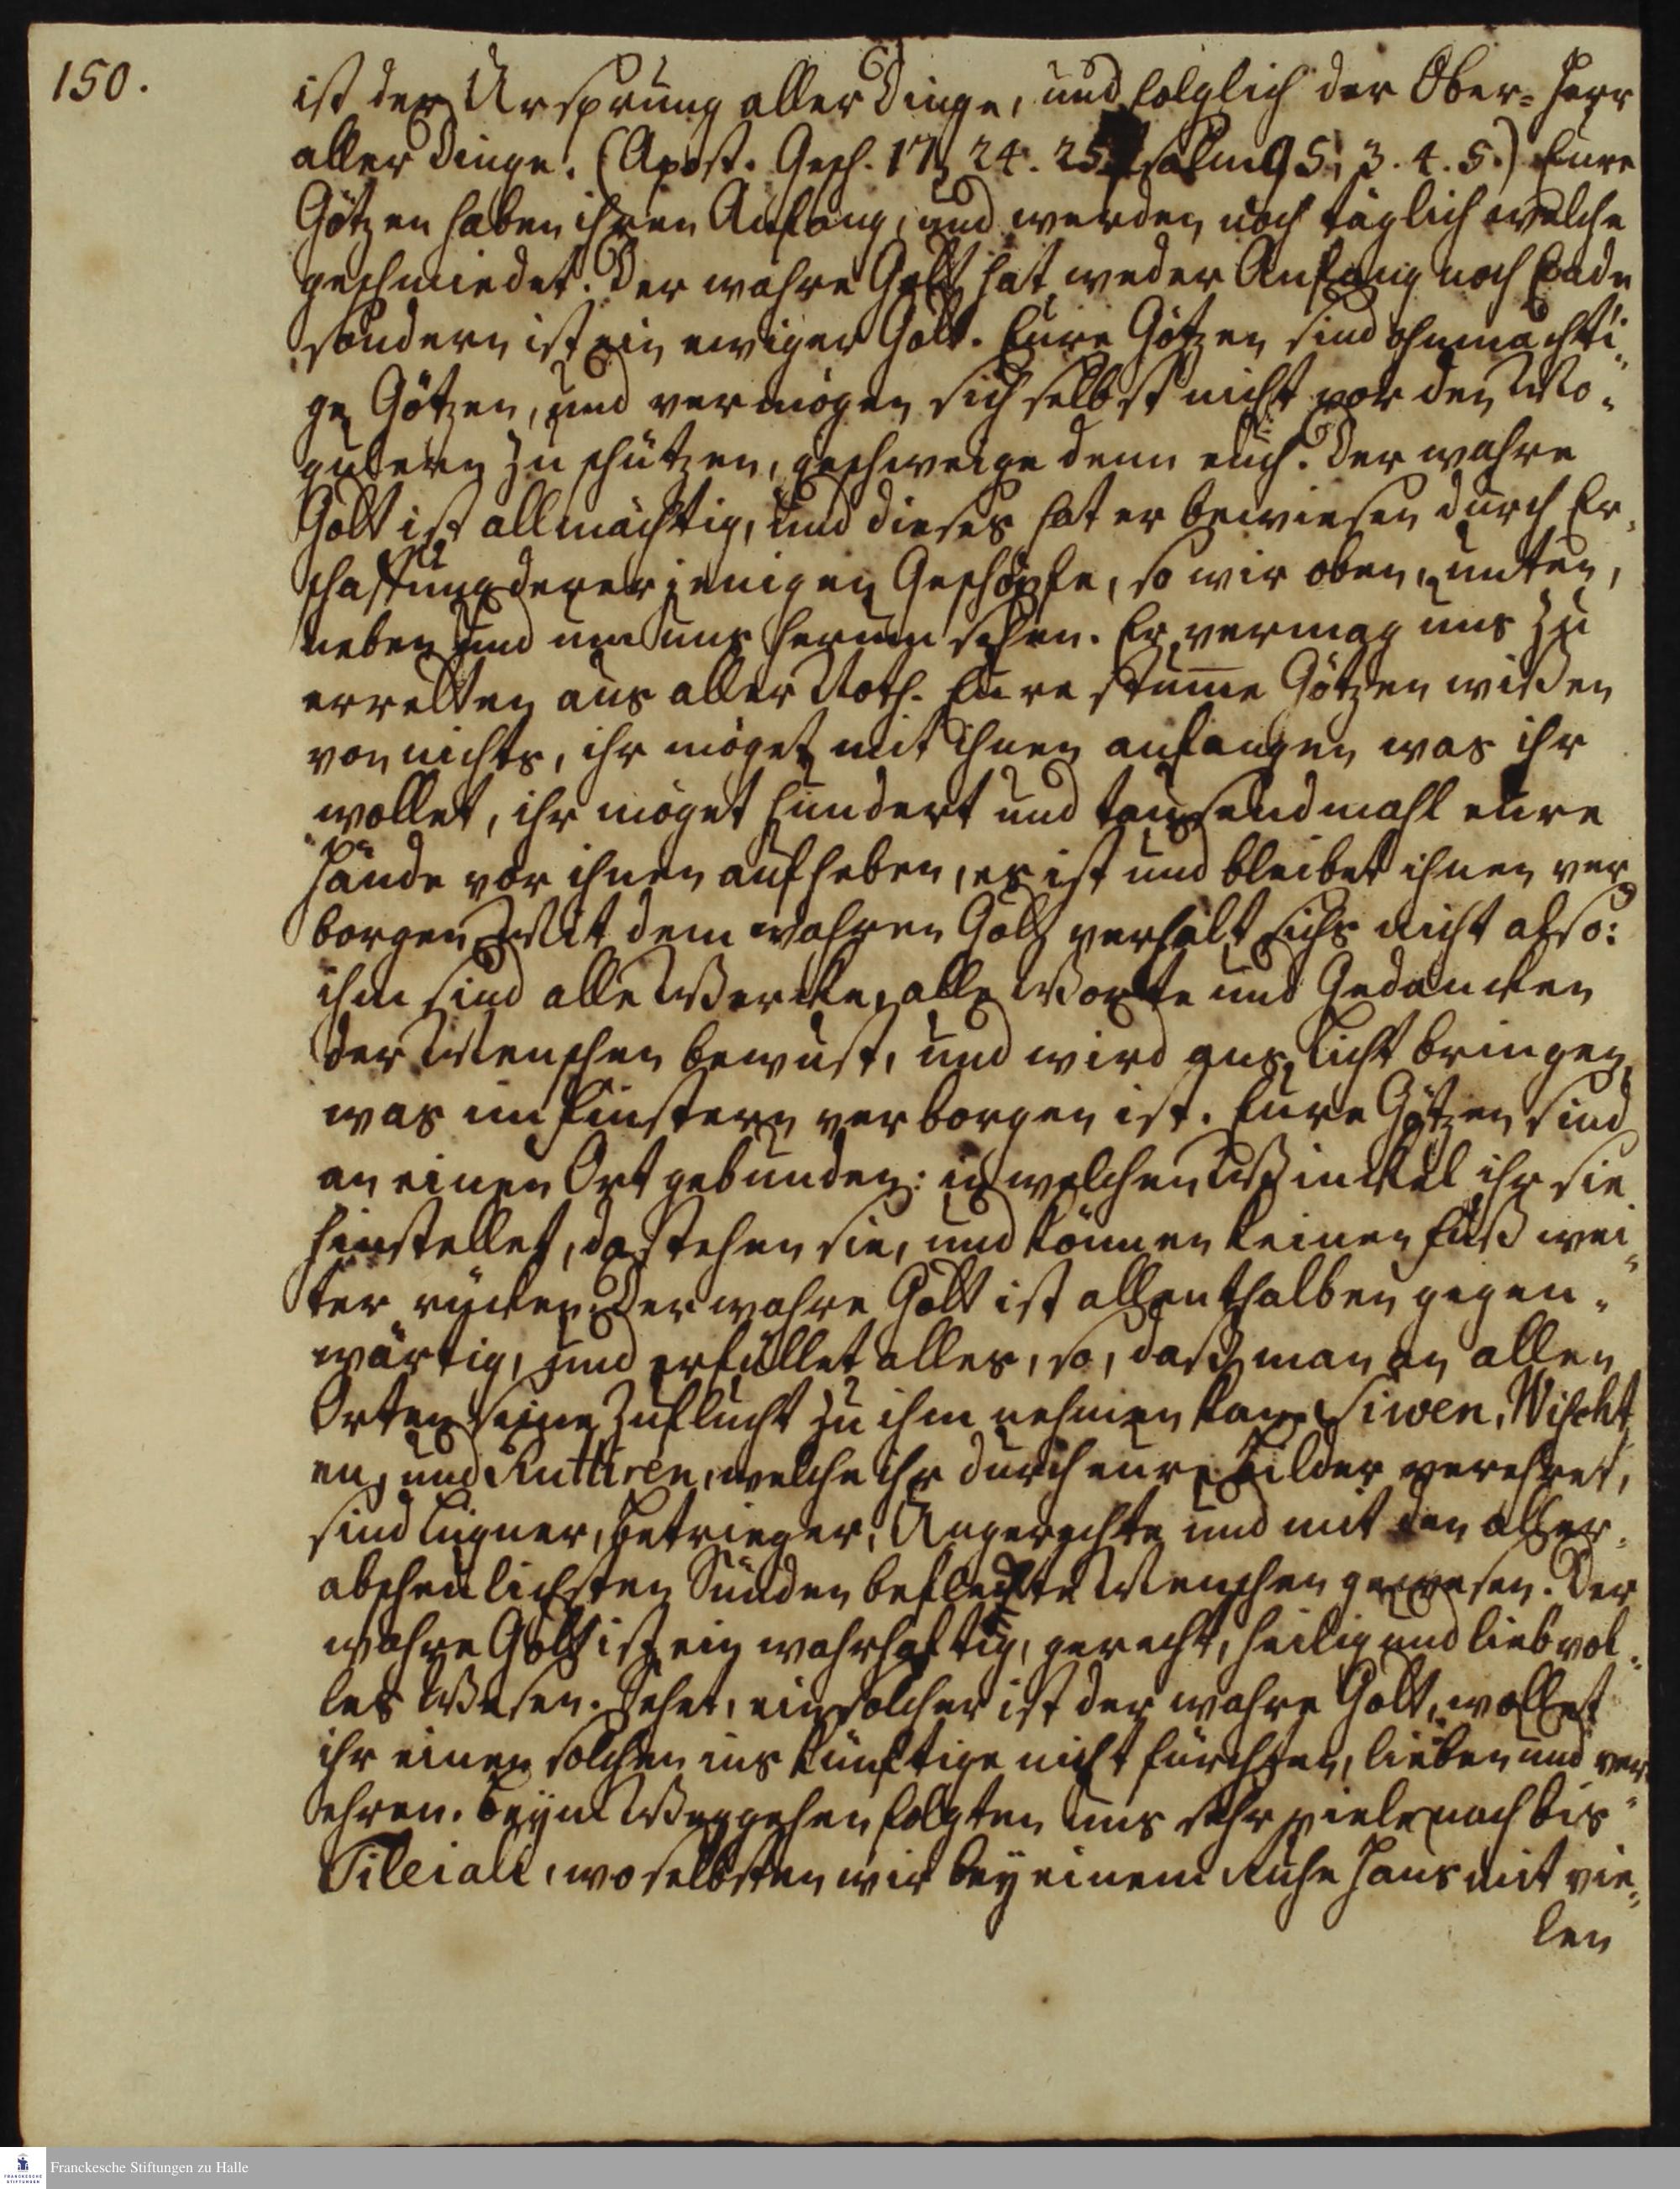 150.
ist der Ursprung aller Dinge, und folglich der Ober-Herr
aller Dinge. (Apost. Gesch. 17, 24. 25. Psalm 95, 3. 4. 5.) Eure
Götzen haben ihren Anfang, und werden noch täglich welche
geschmiedet. Der wahre Gott hat weder Anfang noch Ende
sondern ist ein ewiger Gott. Eure Götzen sind ohnmächti-
ge Götzen, und vermögen sich selbst nicht vor den Mo-
gulern zu schützen, geschweige denn euch. Der wahre
Gott ist allmächtig, und dieses hat er bewiesen durch Er-
schaffung dererjenigen Geschöpfe, so wir oben, unten,
neben und um uns herum sehen. Er vermag uns zu
erretten aus aller Noth. Eure stumme Götzen wißen
von nichts, ihr möget mit ihnen anfangen was ihr
wollet, ihr möget hundert und tausendmahl eure
Hände vor ihnen aufheben, es ist und bleibet ihnen ver-
borgen. Mit dem wahren Gott verhält sichs nicht also:
ihm sind alle Wercke, alle Worte und Gedancken
der Menschen bewust, und wird ans Licht bringen,
was im Finstern verborgen ist. Eure Götzen sind
an einen Ort gebunden: in welchen Winckel ihr sie
hinstellet, da stehen sie, und können keinen Fuß wei-
ter rücken. Der wahre Gott ist allenthalben gegen-
wärtig, und erfüllet alles, so, daß man an allen
Orten seine Zuflucht zu ihm nehmen kan. Siwen, Wischt
en, und Ruttiren, welche ihr durch eure Bilder verehret,
sind Lügner, Betrieger, Ungerechte und mit den aller-
abscheulichsten Sünden befleckte Menschen gewesen. Der
wahre Gott ist ein wahrhaftig, gerecht, heilig und liebvol-
les Wesen. Sehet, ein solcher ist der wahre Gott, wollet
ihr einen solchen ins künftige nicht fürchten, lieben und ver-
ehren. Beym Weggehen folgten uns sehr viele nach bis
Tileiali, woselbsten wir bey einem Ruhe Haus mit vie-
len
Franckesche Stiftungen zu Halle